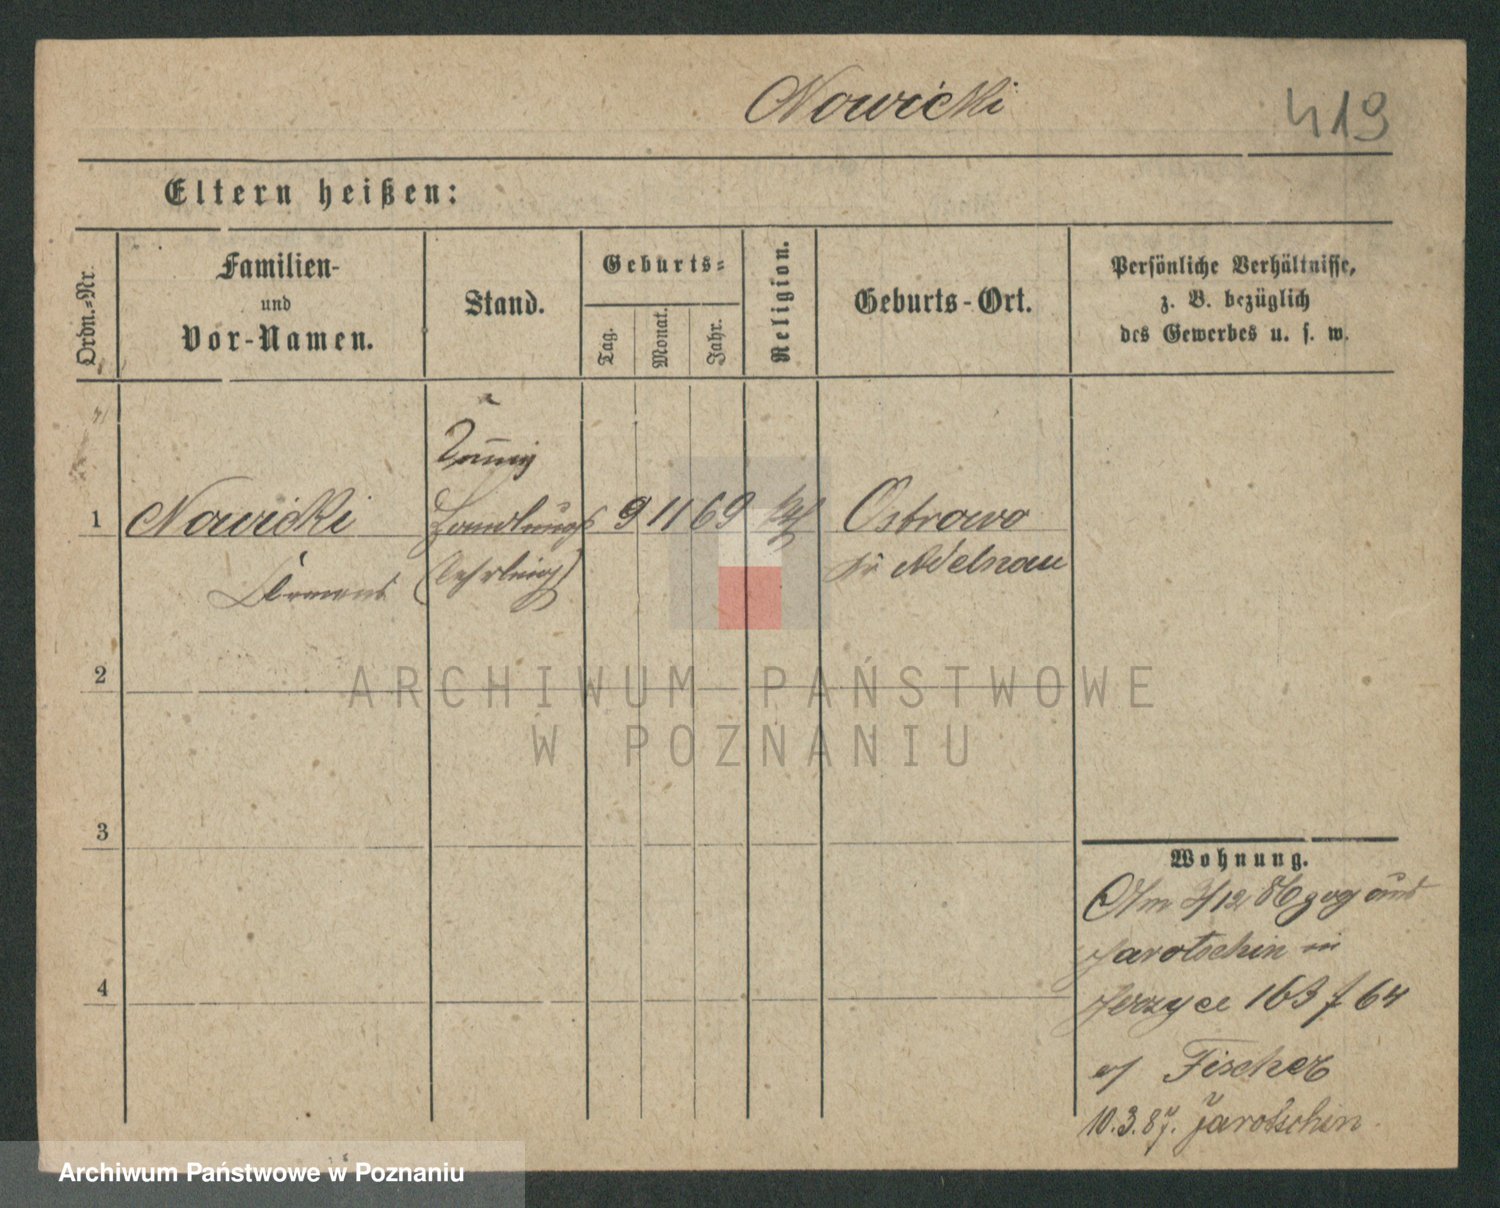 Nowicki
419
Eltern heißen:
Ordn.-Nr.
Familien-
und
Vor-Namen.
Stand.
Geburts-
Tag.
Monat.
Jahr.
Religion.
Geburts-Ort.
Persönliche Verhältnisse,
z. B. bezüglich
des Gewerbes u. s. w.
1 Nowicki Handlungs 9 11 69 Ostrowo
Adelnau
2
3
4
Wohnung.
Am /12 86 zog aus
Jarotschin in
Jerzyce 163 f 64
Fischer
10.3.87. Jarotschin.
ARCHIWUM PAŃSTWOWE
W POZNANIU
Archiwum Państwowe w Poznaniu